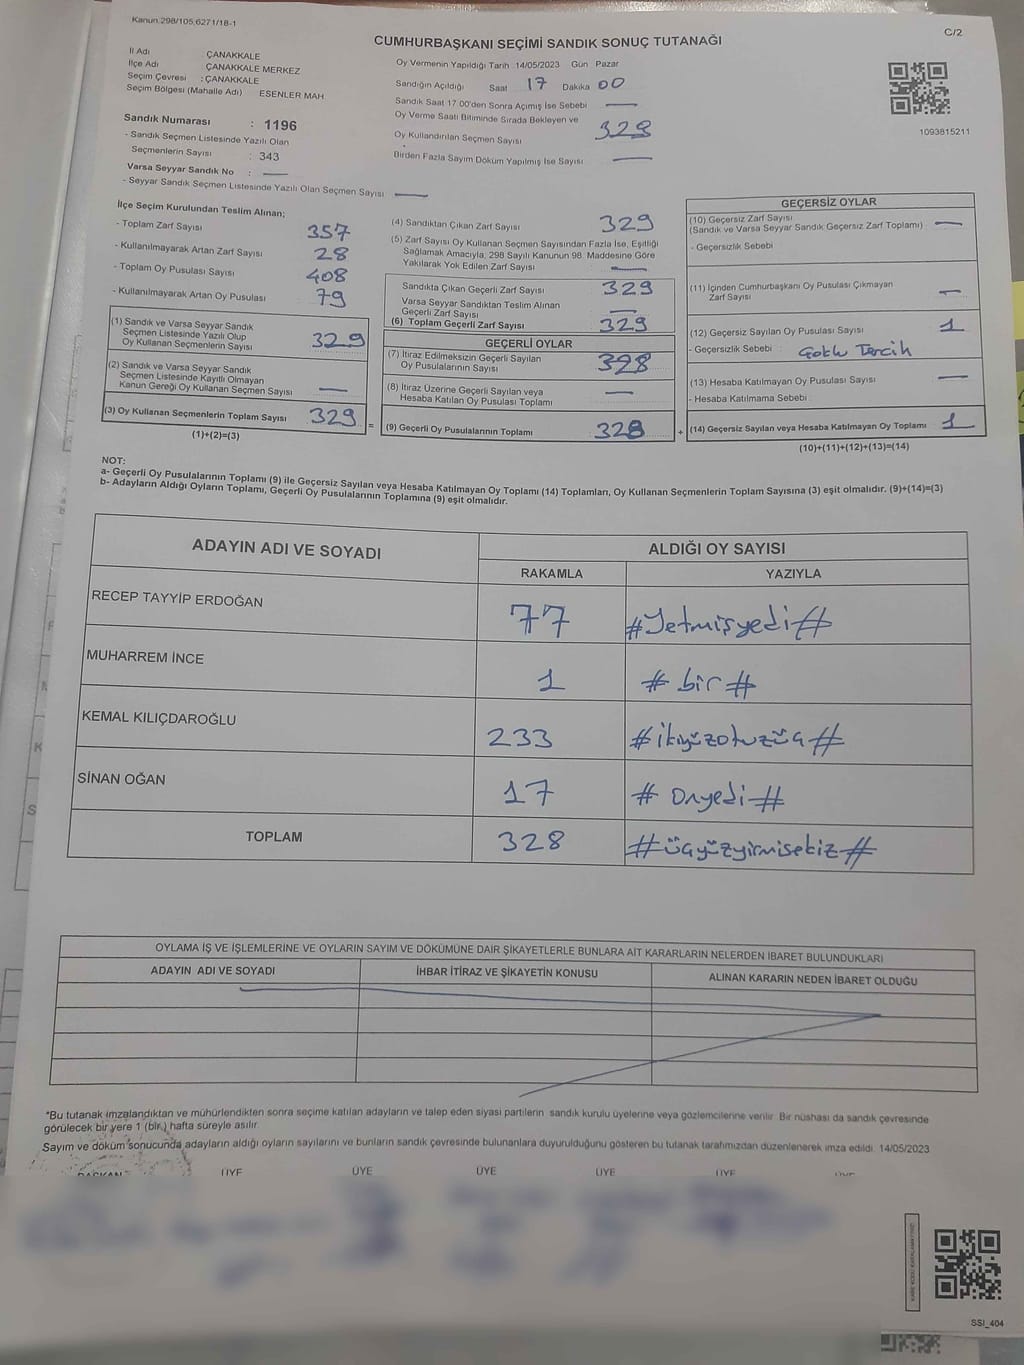 Kanun.298/105,6271/18-1
C/2
CUMHURBAŞKANI SEÇİMİ SANDIK SONUÇ TUTANAĞI
İl Adı : ÇANAKKALE
İlçe Adı : ÇANAKKALE MERKEZ
Seçim Çevresi : ÇANAKKALE
Seçim Bölgesi (Mahalle Adı) ESENLER MAH.
Sandık Numarası : 1196
- Sandık Seçmen Listesinde Yazılı Olan
Seçmenlerin Sayısı : 343
Varsa Seyyar Sandık No : —
- Seyyar Sandık Seçmen Listesinde Yazılı Olan Seçmen Sayısı —
Oy Vermenin Yapıldığı Tarih 14/05/2023 Gün Pazar
Sandığın Açıldığı Saat 17 Dakika 00
Sandık Saat 17.00'den Sonra Açımış İse Sebebi —
Oy Verme Saati Bitiminde Sırada Bekleyen ve
Oy Kullandırılan Seçmen Sayısı 329
Birden Fazla Sayım Döküm Yapılmış İse Sayısı —
1093815211
İlçe Seçim Kurulundan Teslim Alınan;
- Toplam Zarf Sayısı 357
- Kullanılmayarak Artan Zarf Sayısı 28
- Toplam Oy Pusulası Sayısı 408
- Kullanılmayarak Artan Oy Pusulası 79
(1) Sandık ve Varsa Seyyar Sandık
Seçmen Listesinde Yazılı Olup
Oy Kullanan Seçmenlerin Sayısı 329
(2) Sandık ve Varsa Seyyar Sandık
Seçmen Listesinde Kayıtlı Olmayan
Kanun Gereği Oy Kullanan Seçmen Sayısı —
(3) Oy Kullanan Seçmenlerin Toplam Sayısı 329
(1)+(2)=(3)
(4) Sandıktan Çıkan Zarf Sayısı 329
(5) Zarf Sayısı Oy Kullanan Seçmen Sayısından Fazla İse, Eşitliği
Sağlamak Amacıyla, 298 Sayılı Kanunun 98. Maddesine Göre
Yakılarak Yok Edilen Zarf Sayısı —
Sandıkta Çıkan Geçerli Zarf Sayısı 329
Varsa Seyyar Sandıktan Teslim Alınan
Geçerli Zarf Sayısı —
(6) Toplam Geçerli Zarf Sayısı 329
GEÇERLİ OYLAR
(7) İtiraz Edilmeksizin Geçerli Sayılan
Oy Pusulalarının Sayısı 328
(8) İtiraz Üzerine Geçerli Sayılan veya
Hesaba Katılan Oy Pusulası Toplamı —
= (9) Geçerli Oy Pusulalarının Toplamı 328
GEÇERSİZ OYLAR
(10) Geçersiz Zarf Sayısı
(Sandık ve Varsa Seyyar Sandık Geçersiz Zarf Toplamı) —
- Geçersizlik Sebebi
(11) İçinden Cumhurbaşkanı Oy Pusulası Çıkmayan
Zarf Sayısı —
(12) Geçersiz Sayılan Oy Pusulası Sayısı 1
- Geçersizlik Sebebi : Çoklu Tercih
(13) Hesaba Katılmayan Oy Pusulası Sayısı —
- Hesaba Katılmama Sebebi
+ (14) Geçersiz Sayılan veya Hesaba Katılmayan Oy Toplamı 1
(10)+(11)+(12)+(13)=(14)
NOT:
a- Geçerli Oy Pusulalarının Toplamı (9) ile Geçersiz Sayılan veya Hesaba Katılmayan Oy Toplamı (14) Toplamları, Oy Kullanan Seçmenlerin Toplam Sayısına (3) eşit olmalıdır. (9)+(14)=(3)
b- Adayların Aldığı Oyların Toplamı, Geçerli Oy Pusulalarının Toplamına (9) eşit olmalıdır.
ADAYIN ADI VE SOYADI
ALDIĞI OY SAYISI
RAKAMLA YAZIYLA
RECEP TAYYİP ERDOĞAN 77 #Yetmişyedi#
MUHARREM İNCE 1 #bir#
KEMAL KILIÇDAROĞLU 233 #ikiyüzotuzüç#
SİNAN OĞAN 17 #Onyedi#
TOPLAM 328 #üçyüzyirmisekiz#
OYLAMA İŞ VE İŞLEMLERİNE VE OYLARIN SAYIM VE DÖKÜMÜNE DAİR ŞİKAYETLERLE BUNLARA AİT KARARLARIN NELERDEN İBARET BULUNDUKLARI
ADAYIN ADI VE SOYADI İHBAR İTİRAZ VE ŞİKAYETİN KONUSU ALINAN KARARIN NEDEN İBARET OLDUĞU
*Bu tutanak imzalandıktan ve mühürlendikten sonra seçime katılan adayların ve talep eden siyasi partilerin sandık kurulu üyelerine veya gözlemcilerine verilir. Bir nüshası da sandık çevresinde
görülecek bir yere 1 (bir ) hafta süreyle asılır.
Sayım ve döküm sonucunda adayların aldığı oyların sayılarını ve bunların sandık çevresinde bulunanlara duyurulduğunu gösteren bu tutanak tarafımızdan düzenlenerek imza edildi. 14/05/2023
BAŞKAN ÜYE ÜYE ÜYE ÜYE ÜYE ÜYE
SSI_404